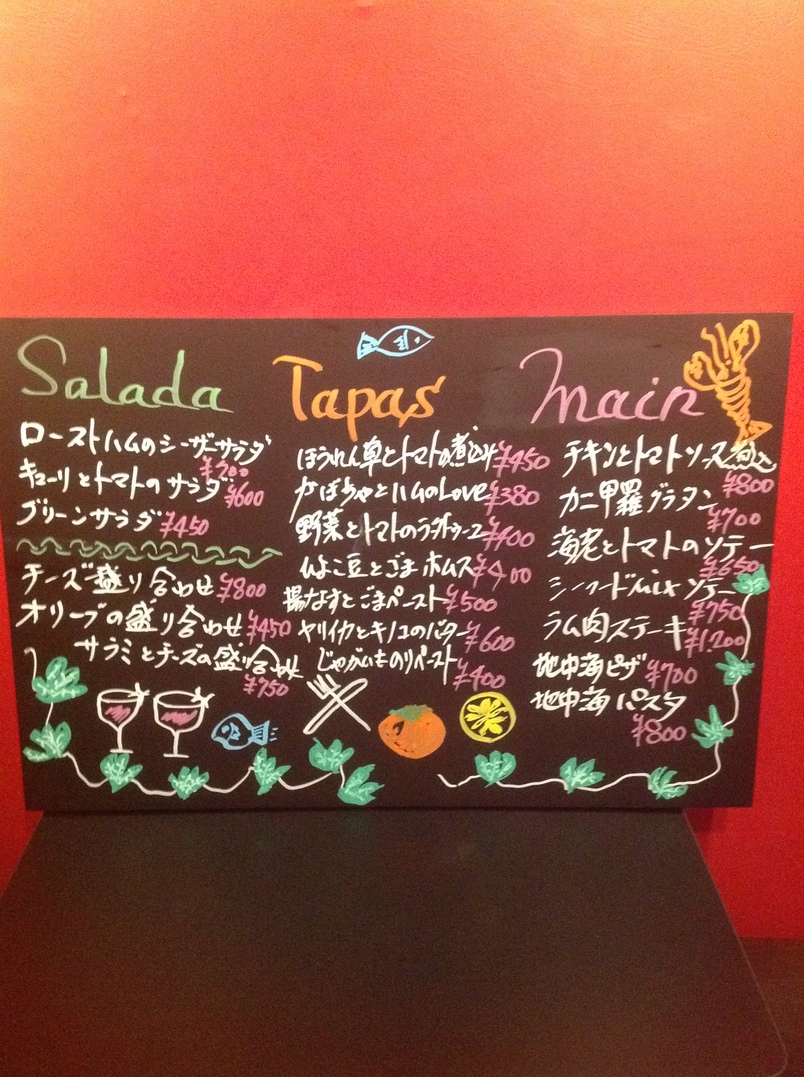 Salada
ローストハムのシーザーサラダ
¥700
キューリとトマトのサラダ ¥600
グリーンサラダ ¥450
チーズ盛り合わせ ¥800
オリーブの盛り合わせ ¥450
サラミとチーズの盛り合わせ
¥750
Tapas
ほうれん草とトマトの煮込み ¥450
かぼちゃとハムのLove ¥380
野菜とトマトのラタトゥーユ ¥400
ひよこ豆とごまホムス ¥400
揚なすとごまペースト ¥500
ヤリイカとキノコのバター ¥600
じゃがいものリペースト
¥400
Main
チキンとトマトソース煮込
¥800
カニ甲羅グラタン
¥700
海老とトマトのソテー
¥650
シーフードmixソテー
¥750
ラム肉ステーキ ¥1.200
地中海ピザ ¥700
地中海パスタ
¥800